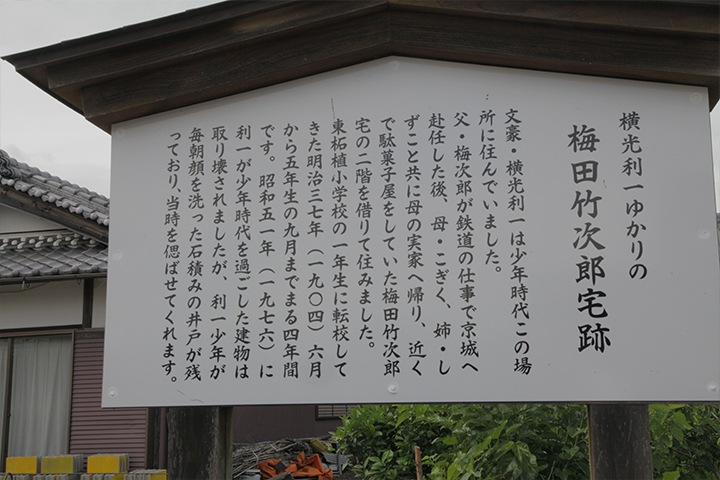 横光利一ゆかりの
梅田竹次郎宅跡
文豪・横光利一は少年時代この場
所に住んでいました。
父・梅次郎が鉄道の仕事で京城へ
赴任した後、母・こぎく、姉・し
ずこと共に母の実家へ帰り、近く
で駄菓子屋をしていた梅田竹次郎
宅の二階を借りて住みました。
東柘植小学校の一年生に転校して
きた明治三七年（一九〇四）六月
から五年生の九月までまる四年間
です。昭和五一年（一九七六）に
利一が少年時代を過ごした建物は
取り壊されましたが、利一少年が
毎朝顔を洗った石積みの井戸が残
っており、当時を偲ばせてくれます。